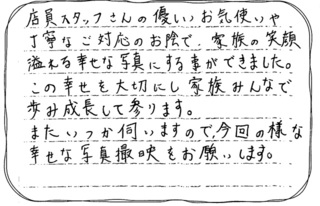 店員スタッフさんの優しいお気使いや
丁寧なご対応のお陰で、家族の笑顔
溢れる幸せな写真にする事ができました。
この幸せを大切にし家族みんなで
歩み成長して参ります。
またいつか伺いますので、今回の様な
幸せな写真撮映をお願いします。